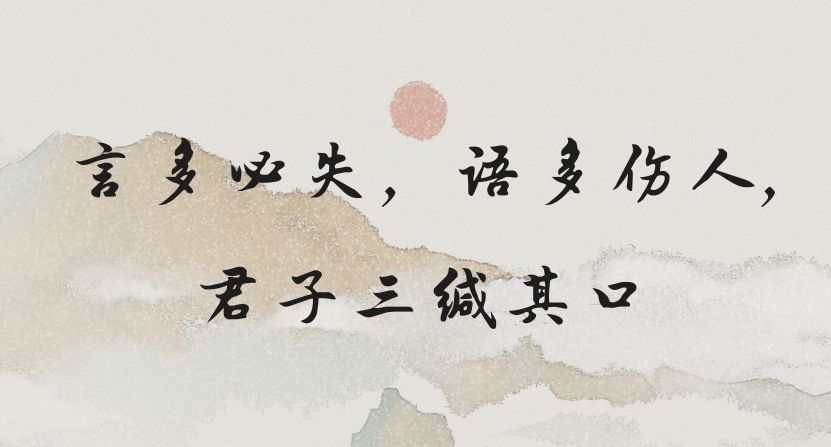 言多必失，语多伤人，
君子三缄其口